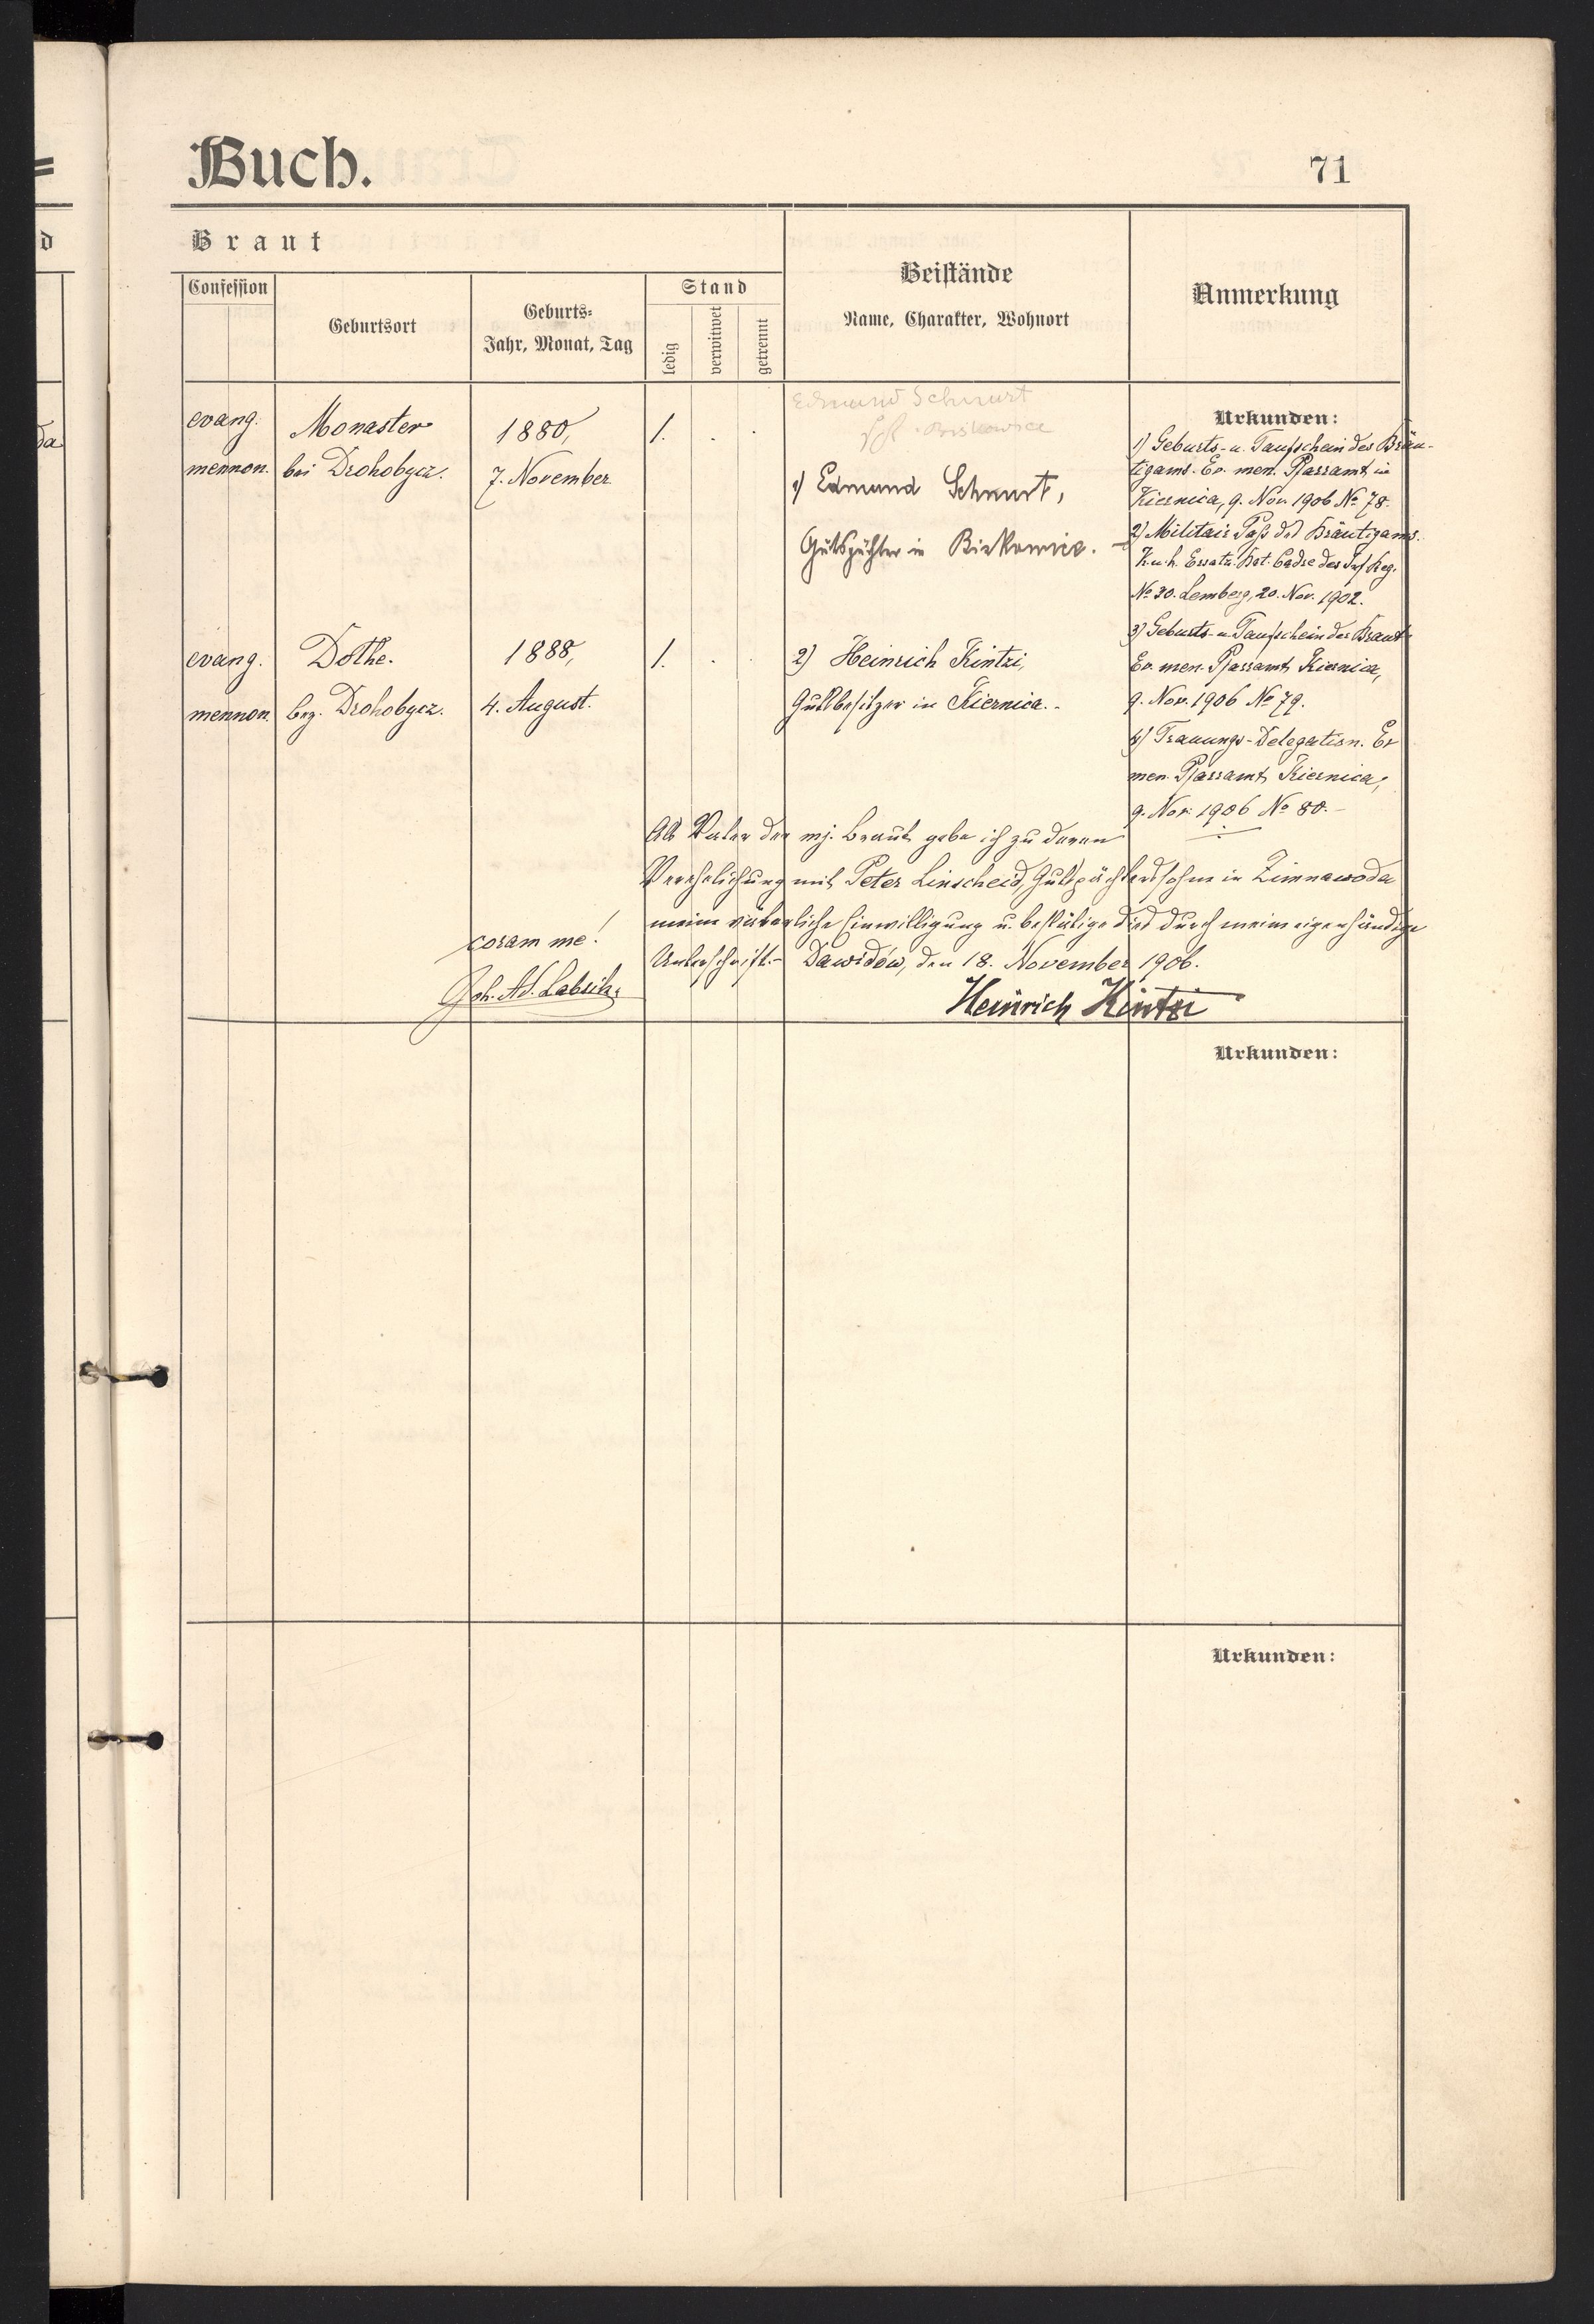 Buch.
71
d
Braut
Confession
Geburtsort
Geburts-
Jahr, Monat, Tag
Stand
ledig
verwitwet
getrennt
Beistände
Name, Charakter, Wohnort
Anmerkung
da
evang.
mennon.
Monaster
bei Drohobycz.
1880,
7. November
1.
.
.
Edmund Schmurt
Biskowice
1) Edmund Schmurt,
Gutspächter in
Urkunden:
1) Geburts- u. Taufschein des Bräu-
tigams. Ev. men. Pfarramt in
Kiernica, 9. Nov. 1906 No 78.
2) Militair Paß des Bräutigams.
K. u. k. Ersatz. Bat. Cadre des Inf. Reg.
No 30. Lemberg, 20. Nov. 1902.
3) Geburts- u. Taufschein der Braut
Ev. men. Pfarramt Kiernica,
9. Nov. 1906 No 79.
4) Trauungs-Delegation. Ev
men. Pfarramt Kiernica,
9. Nov. 1906 No 80.-
evang.
mennon.
Dothe.
bez. Drohobycz.
1888,
4. August.
1.
.
.
2) Heinrich Kintzi,
Gutsbesitzer in Kiernica.-
Als Vater der mj. Braut gebe ich zu deren
Verehelichung mit Peter Linscheid, Gutspächterssohn in Zimnawoda
meine väterliche Einwilligung u. bestätige dies durch meine eigenhändige
Unterschrift.- Dawidów, den 18. November 1906.
Heinrich Kintzi
coram me!
Joh. Ad.
Urkunden:
Urkunden: